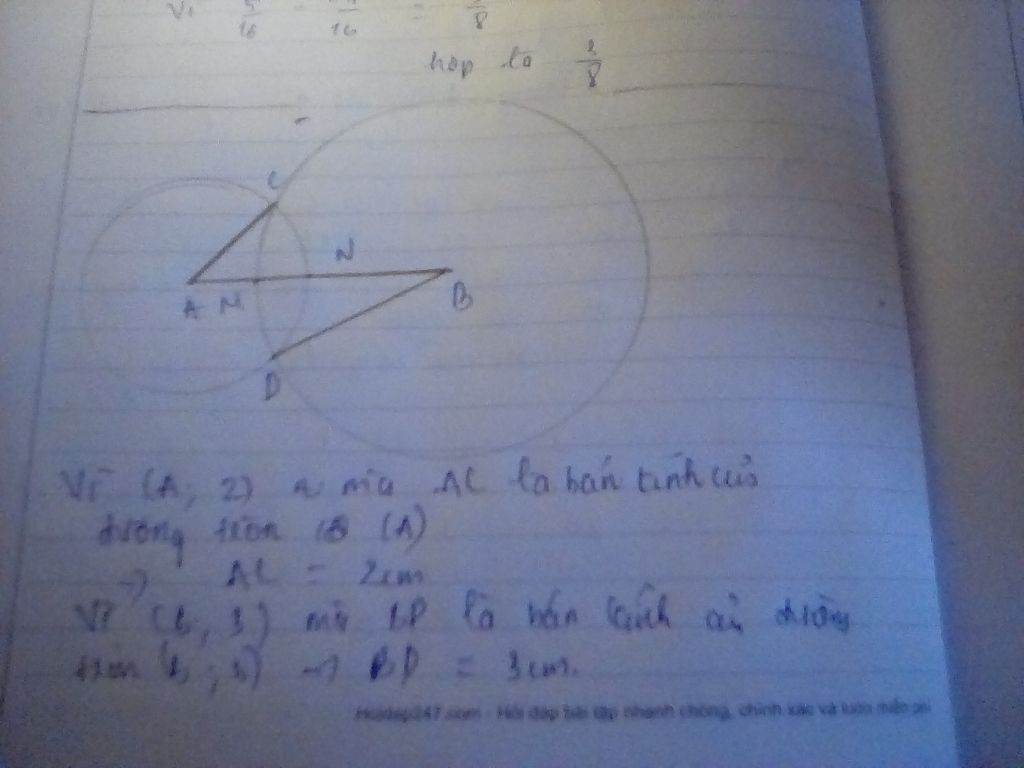 Vì 5/16 - /16 = /8
hộp là 2/8
C
N
A M
B
D
Vì (A; 2) mà AC là bán kính của
đường tròn (A)
→ AC = 2cm
Vì (B, 3) mà BD là bán kính của đường
tròn (B; 3) → BD = 3cm.
Hoidap247.com - Hỏi đáp bài tập nhanh chóng, chính xác và luôn miễn phí